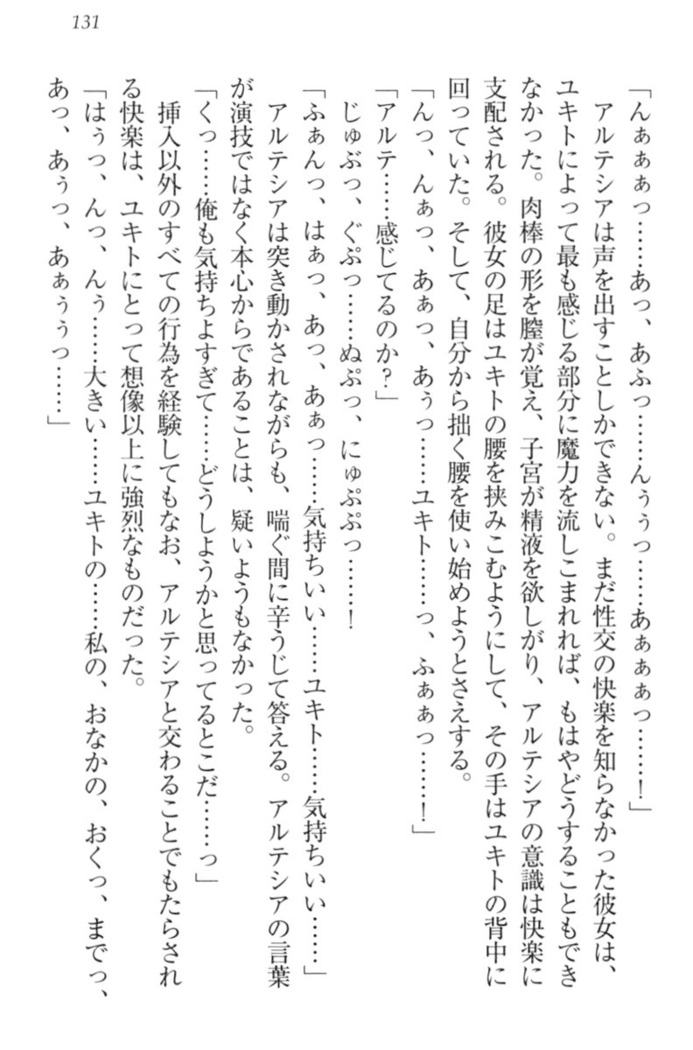 131
「んぁぁぁっ……あっ、あふっ……んぅぅっ……あぁぁぁっ……！」
　アルテシアは声を出すことしかできない。まだ性交の快楽を知らなかった彼女は、
ユキトによって最も感じる部分に魔力を流しこまれれば、もはやどうすることもでき
なかった。肉棒の形を膣が覚え、子宮が精液を欲しがり、アルテシアの意識は快楽に
支配される。彼女の足はユキトの腰を挟みこむようにして、その手はユキトの背中に
回っていた。そして、自分から拙く腰を使い始めようとさえする。
「んっ、んぁっ、あぁっ、あぅっ……ユキト……っ、ふぁぁっ……！」
「アルテ……感じてるのか？」
　じゅぶっ、ぐぷっ……ぬぷっ、にゅぷぷっ……！
「ふぁんっ、はぁっ、あっ、あぁっ……気持ちいい……ユキト……気持ちいい……」
　アルテシアは突き動かされながらも、喘ぐ間に辛うじて答える。アルテシアの言葉
が演技ではなく本心からであることは、疑いようもなかった。
「くっ……俺も気持ちよすぎて……どうしようかと思ってるとこだ……っ」
　挿入以外のすべての行為を経験してもなお、アルテシアと交わることでもたらされ
る快楽は、ユキトにとって想像以上に強烈なものだった。
「はぅっ、んっ、んぅ……大きい……ユキトの……私の、おなかの、おくっ、までっ、
あっ、あぅっ、あぁぅぅっ……」